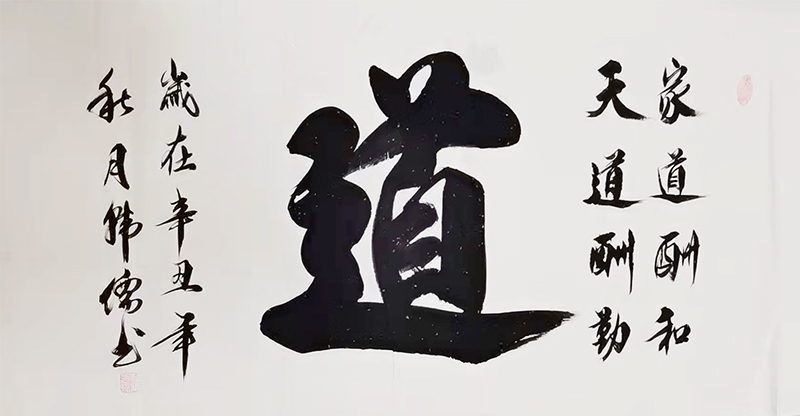 家道酬和
天道酬勤
道
歲在辛丑年
秋月韩儒书